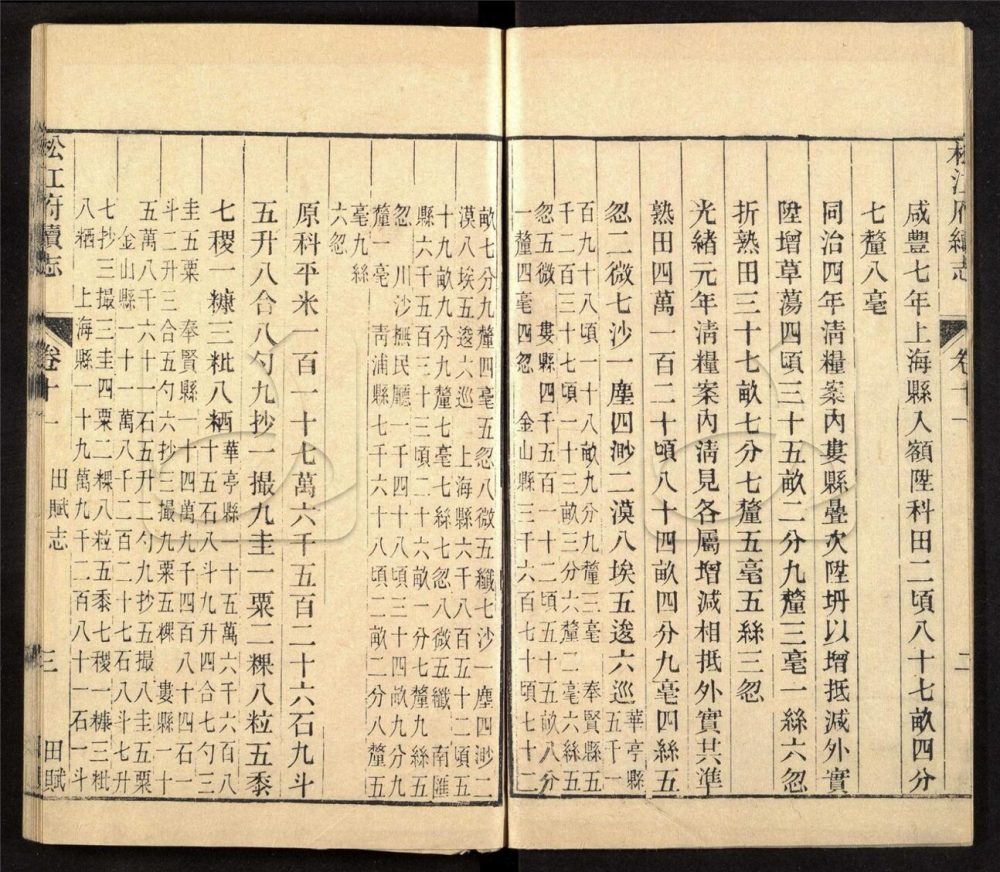 松江府續志 卷十一 二
咸豐七年上海縣入額陞科田二頃八十七畝四分
七釐八毫
同治四年淸糧案內婁縣曡次陞坍以增抵減外實
陞增草蕩四頃三十五畝二分九釐三毫一絲六忽
折熟田三十七畝七分七釐五毫五絲三忽
光緒元年淸糧案內淸見各屬增減相抵外實共準
熟田四萬一百二十頃八十四畝四分九毫四絲五
忽二微七沙一塵四渺二漠八埃五逡六巡
華亭縣
五千一
百九十八頃一十八畝九分九釐三毫 奉賢縣五
千二百三十七頃一十三畝三分六釐二毫六絲五
忽五微 婁縣四千五百一十二頃五十五畝八分
一釐四毫四忽 金山縣三千六百七十頃七十二
畝七分九釐四毫五忽八微五纖七沙一塵四渺二
漠八埃五逡六巡 上海縣六千八百五十二頃五
十九畝九分九釐七毫七絲七忽八微五纖 南匯
縣六千五百三十三頃二十六畝一分七釐九絲五
忽 川沙撫民廳一千四十八頃三十四畝九分九
釐一毫 靑浦縣七千六十八頃二畝二分八釐五
毫九絲
六忽
原科平米一百一十七萬六千五百二十六石九斗
五升八合八勺九抄一撮九圭一粟二粿八粒五黍
七稷一糠三粃八粞
華亭縣一十五萬六千六百八
十五石八斗九升四合七勺三
圭五粟 奉賢縣一十四萬九千四百八十四石一
斗二升三合五勺六抄三撮九粟五粿 婁縣一十
五萬八千六十一石五升二勺九抄五撮八圭五粟
金山縣一十一萬八千二百二十七石八斗七升
七抄三撮三圭四粟二粿八粒五黍七稷一糠三粃
八粞 上海縣一十九萬九千二百八十一石一斗
松江府續志 卷十一 田賦志 三 田賦